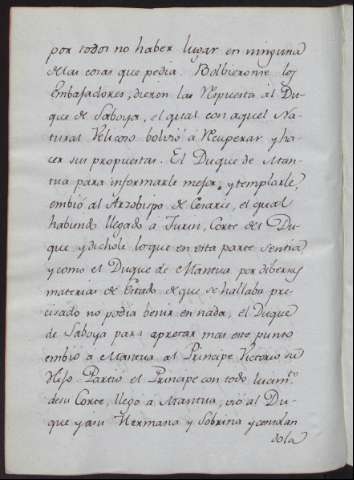 por todos no haber lugar en ninguna
de las cosas que pedia. Bolbieronse los
Embajadores, dieron las Repuesta al Du
que de Saboya, el qual con aquel Na
tural Velicoso bolvió a Recuperar y ha
cer sus propuestas. El Duque de Man
tua para informarle mejor y templarle,
embió al Arzobispo de Cesarea, el qual
habiendo llegado a Turin, Corte del Du
que y dichole lo que en esta parte sentia
y como el Duque de Mantua por diversas
materias de Estado de que se hallaba pre
cisado no podia benir en nada, el Duque
de Saboya para apretar mas este punto
embió a Mantua al Principe Victorio su
Hijo. Partió el Principe con todo lucim.to
de su Corte, llegó a Mantua, vió al Du
que y a su Hermana y Sobrina y consolan
dola